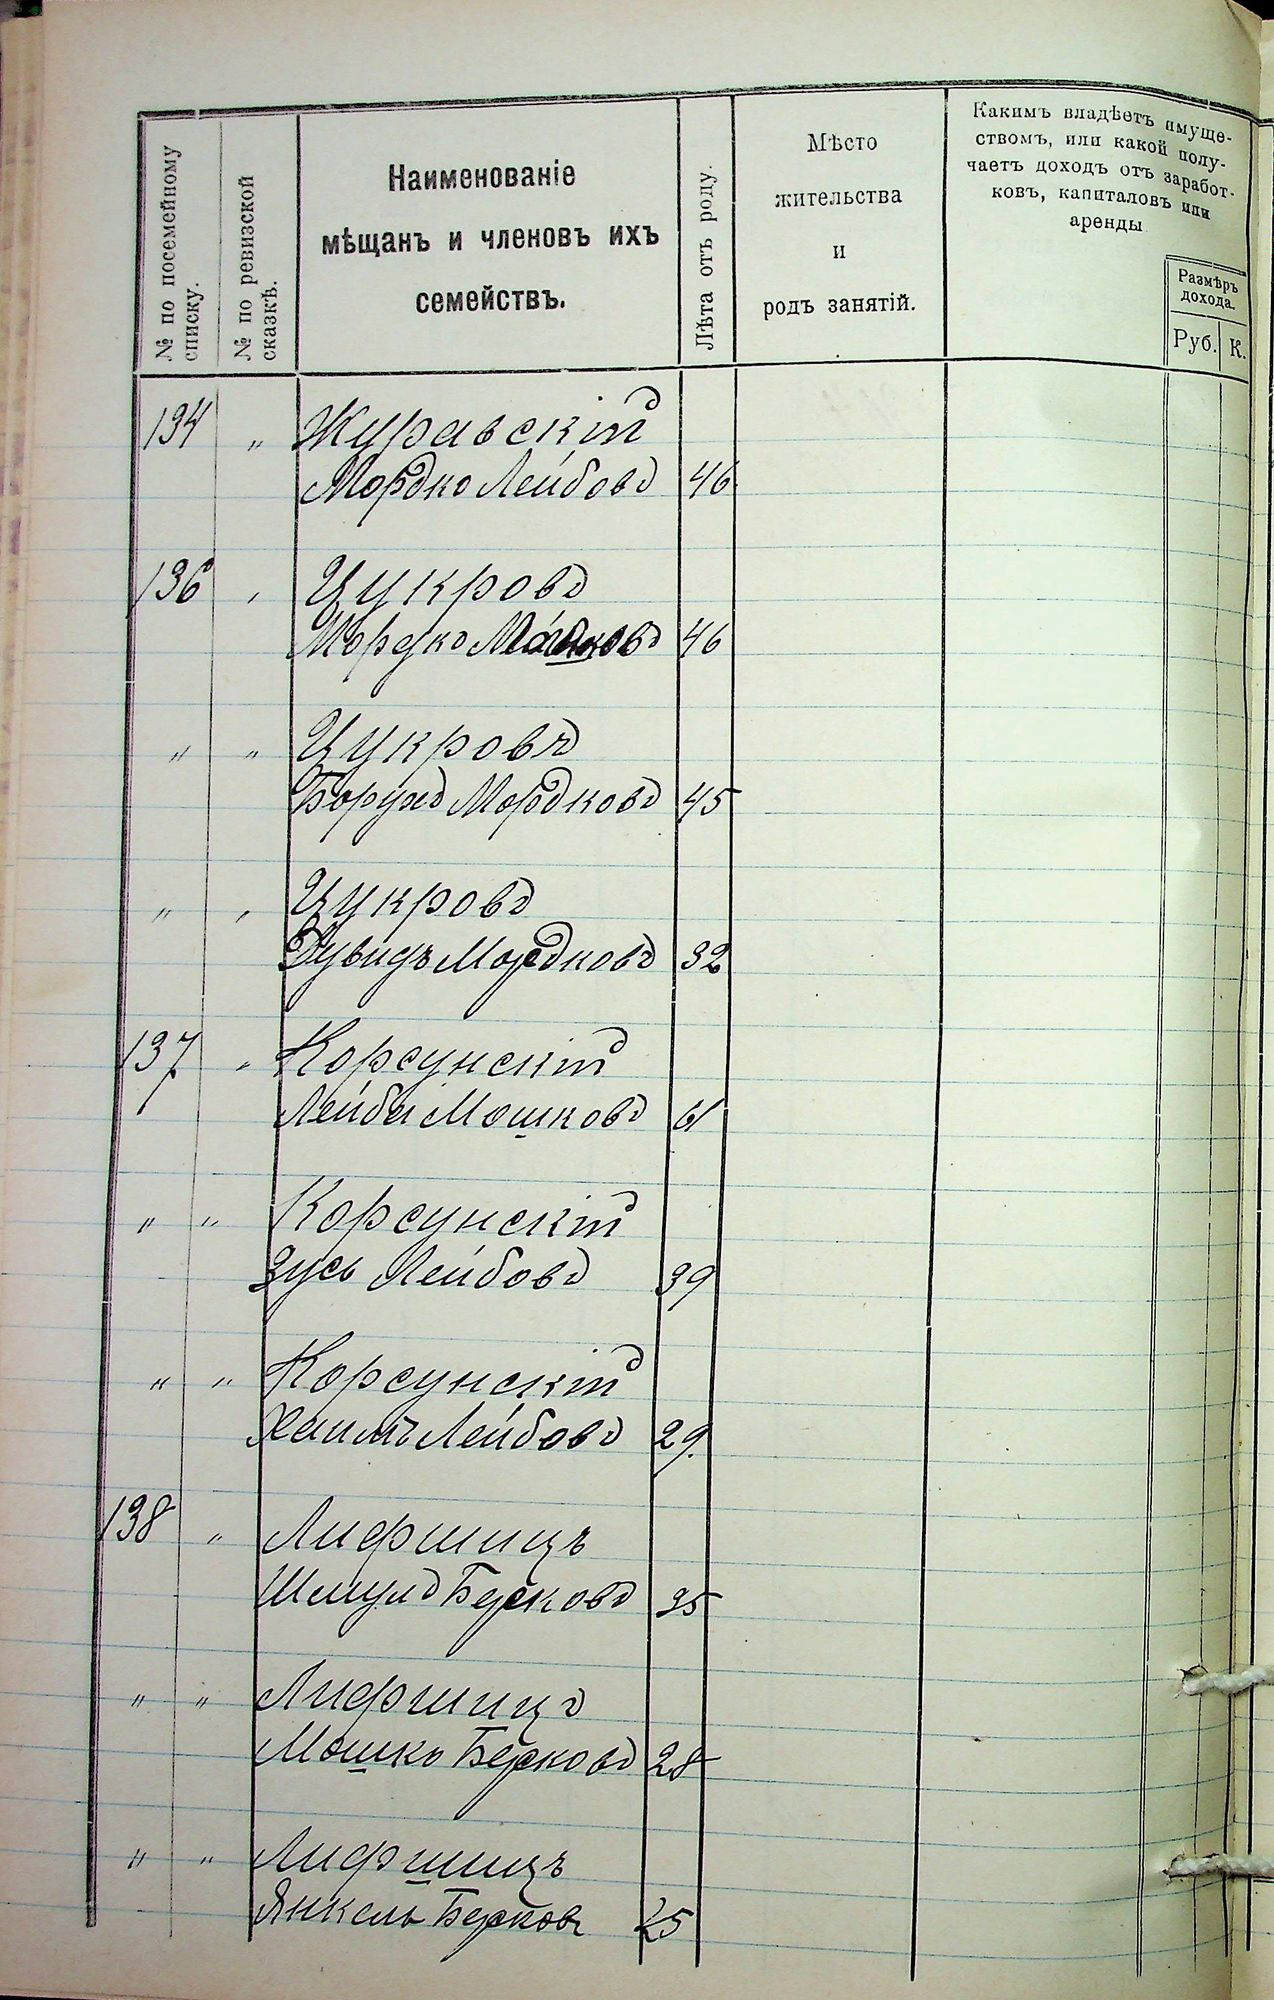 № по посемейному
списку.
№ по ревизской
сказкѣ.
Наименованіе
мѣщанъ и членовъ ихъ
семействъ.
Лѣта отъ роду.
Мѣсто
жительства
и
родъ занятій.
Какимъ владѣетъ имуще-
ствомъ, или какой полу-
чаетъ доходъ отъ заработ-
ковъ, капиталовъ или
аренды
Размѣръ
дохода.
Руб. К.
134 „ Журавскій
Мордко Лейбовъ 46
136 „ Цукровъ
Мордко 46
„ „ Цукровъ
Борухъ Мордковъ 45
„ „ Цукровъ
Дувидъ Мордковъ 32
137 „ Корсунскій
Лейба Мошковъ 61
„ „ Корсунскій
Зусь Лейбовъ 39
„ „ Корсунскій
Хаимъ Лейбовъ 29
138 „ Лифшицъ
Шмулъ Берковъ 35
„ „ Лифшицъ
Мошко Берковъ 28
„ „ Лифшицъ
Янкель Берковъ 25